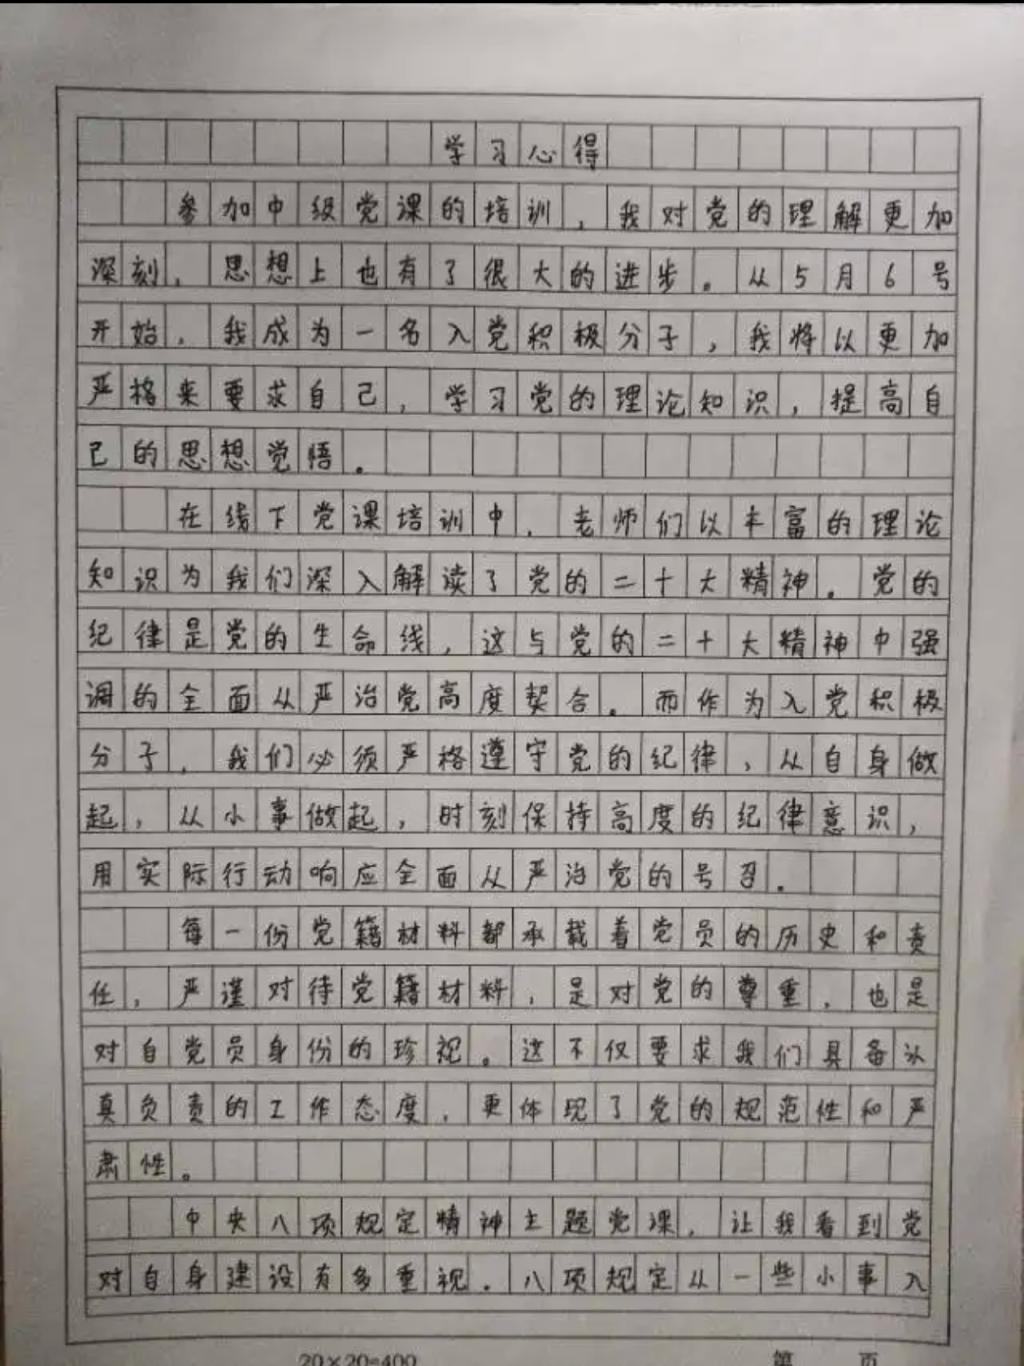 学习心得
参加中级党课的培训，我对党的理解更加
深刻，思想上也有了很大的进步。从5月6号
开始，我成为一名入党积极分子，我将以更加
严格来要求自己，学习党的理论知识，提高自
己的思想觉悟。
在线下党课培训中，老师们以丰富的理论
知识为我们深入解读了党的二十大精神。党的
纪律是党的生命线，这与党的二十大精神中强
调的全面从严治党高度契合。而作为入党积极
分子，我们必须严格遵守党的纪律，从自身做
起，从小事做起，时刻保持高度的纪律意识，
用实际行动响应全面从严治党的号召。
每一份党籍材料都承载着党员的历史和责
任，严谨对待党籍材料，是对党的尊重，也是
对自党员身份的珍视。这不仅要求我们具备认
真负责的工作态度，更体现了党的规范性和严
肃性。
中央八项规定精神主题党课，让我看到党
对自身建设有多重视。八项规定从一些小事入
20×20=400 第 页